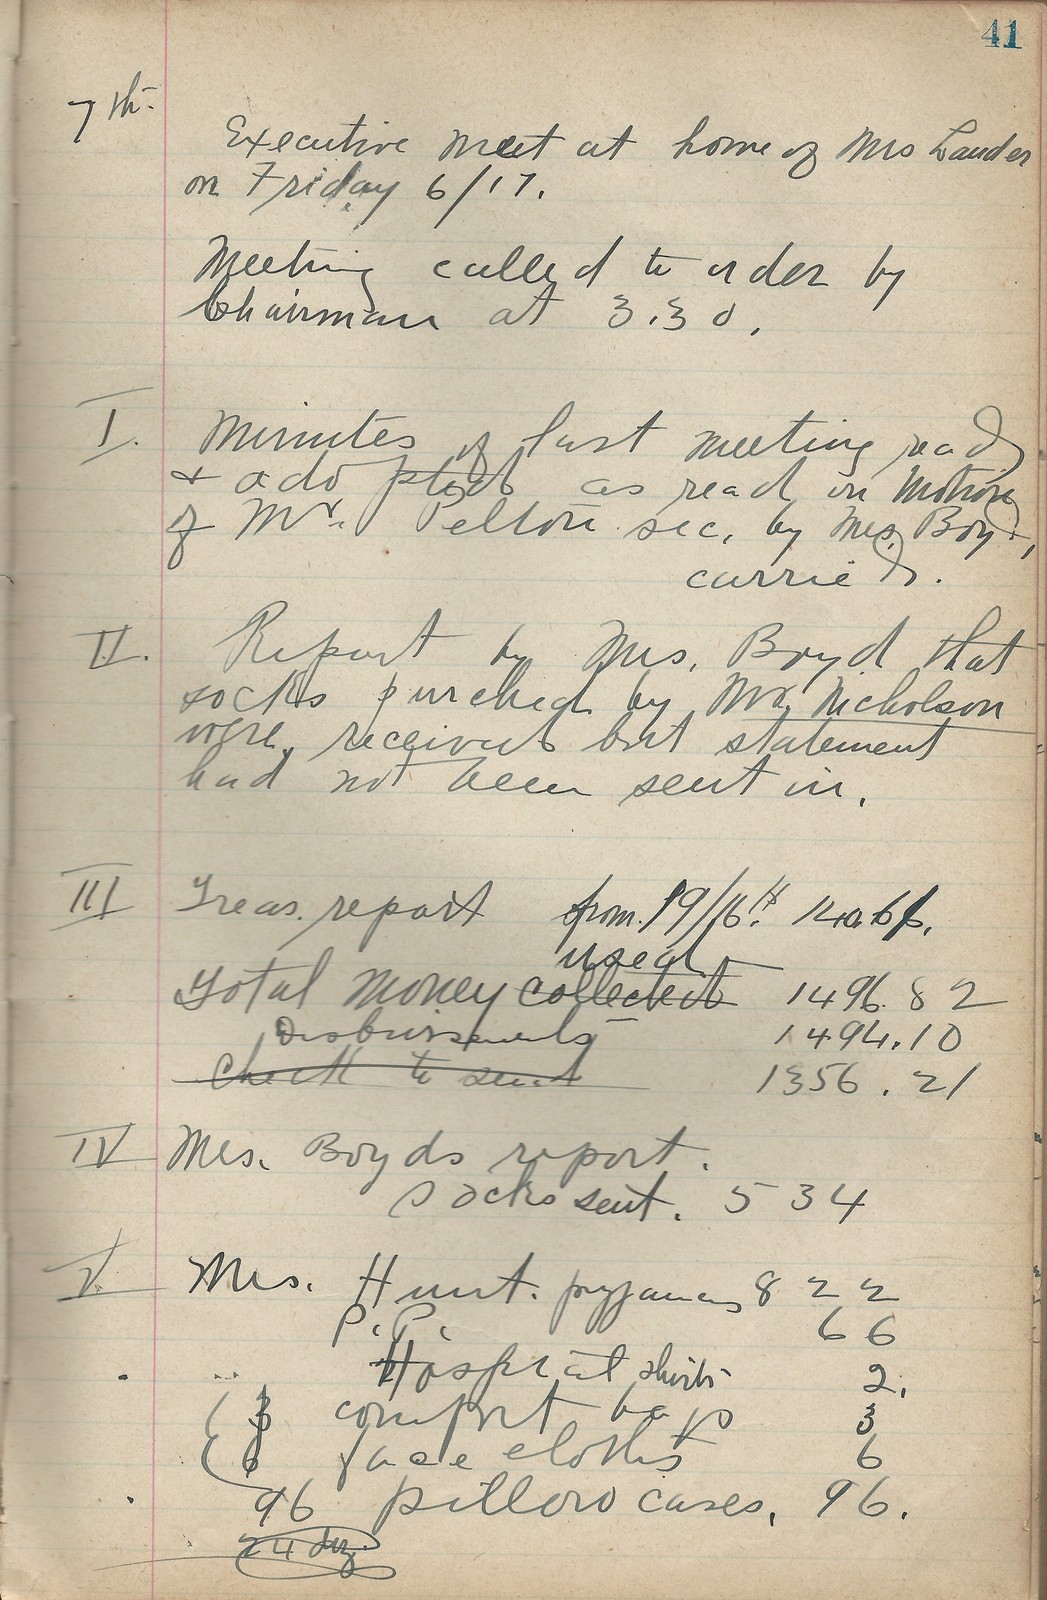 41
7th.
Executive meet at home of Mrs Lauder
on Friday 6/17.
Meeting called to order by
Chairman at 3.30.
I. Minutes of last meeting read
+ adopted as read on motion
of Mr. Pelton sec. by Mrs. Boyd,
carried.
II. Report by Mrs. Boyd that
socks purched by Mr. Nicholson
were received but statement
had not been sent in.
III Treas. report from 19/16th
used
Total money collected 1496.82
Disbursements 1494.10
Check to sent 1356.21
IV Mrs. Boyds report.
Socks sent. 534
V Mrs. Hunt. pyjamas 822
P.P. 66
Hospital shirts 2.
3 comfort bags 3
6 face cloths 6
96 pillow cases, 96.
24 doz.